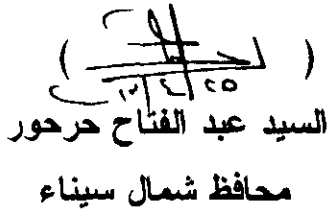 ( )
السيد عبد الفتاح حرحور
محافظ شمال سيناء